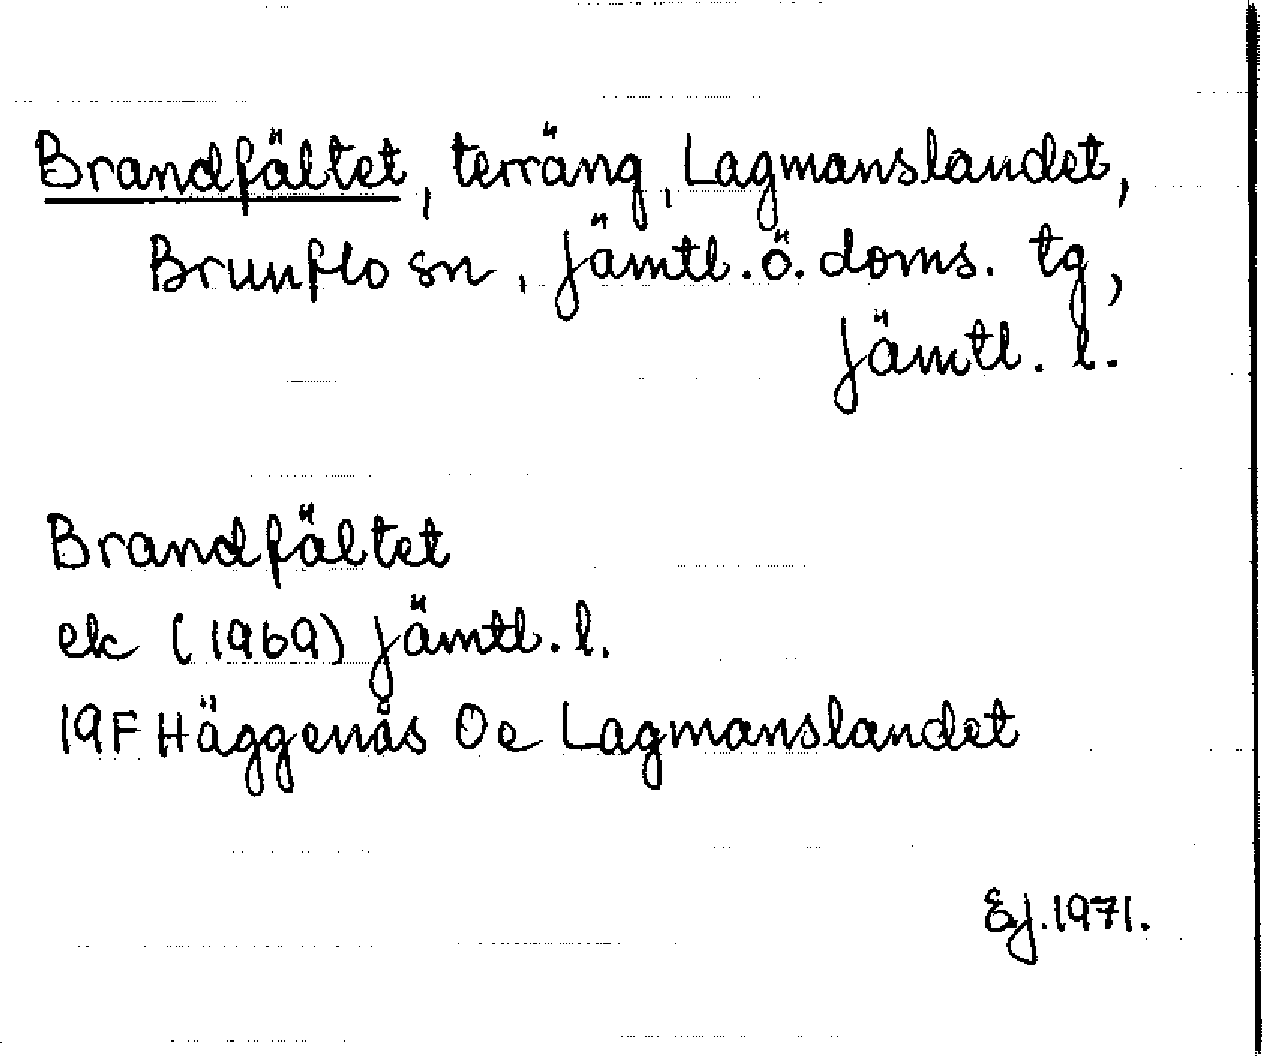 Brandfältet, terräng, Lagmanslandet,
Brunflo sn, Jämtl. ö. doms. tg,
Jämtl. l.
Brandfältet
ek (1969) Jämtl. l.
19F Häggenås Oe Lagmanslandet
EJ. 1971.